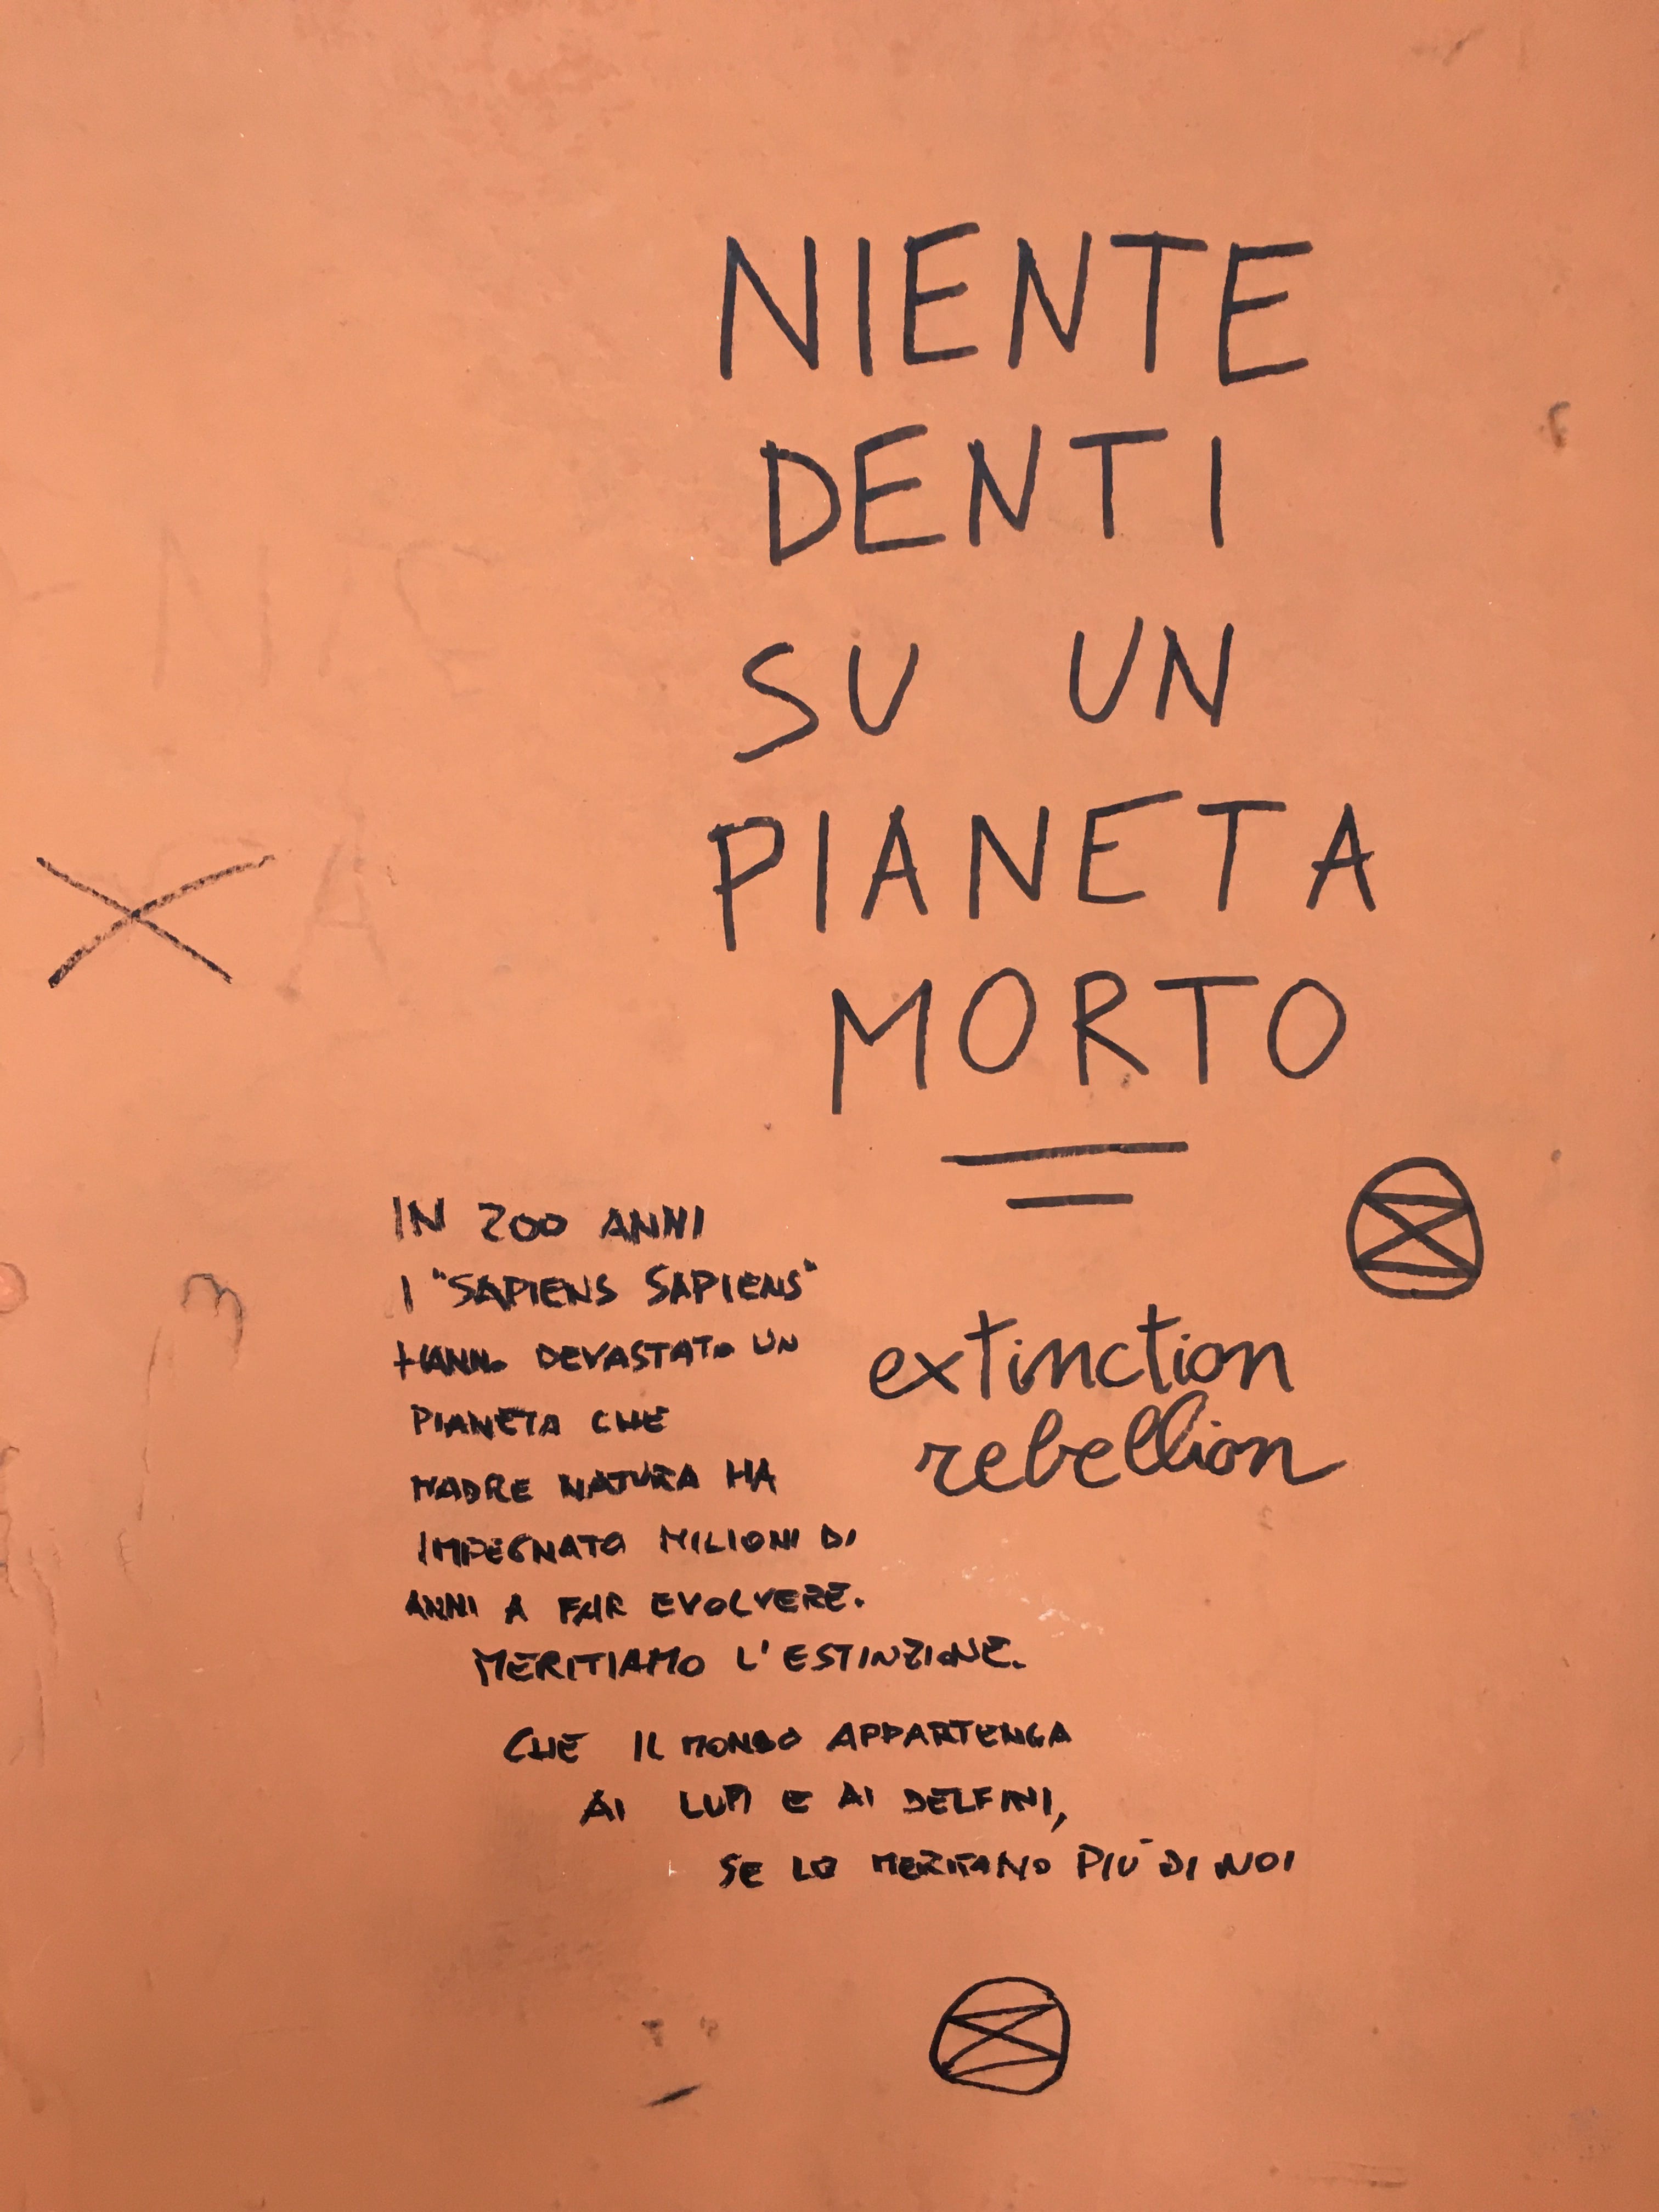 NIENTE
DENTI
SU UN
PIANETA
MORTO
extinction
rebellion
IN 200 ANNI
I "SAPIENS SAPIENS"
HANNO DEVASTATO UN
PIANETA CHE
MADRE NATURA HA
IMPEGNATO MILIONI DI
ANNI A FAR EVOLVERE.
MERITIAMO L'ESTINZIONE.
CHE IL MONDO APPARTENGA
AI LUPI E AI DELFINI,
SE LO MERITANO PIÙ DI NOI